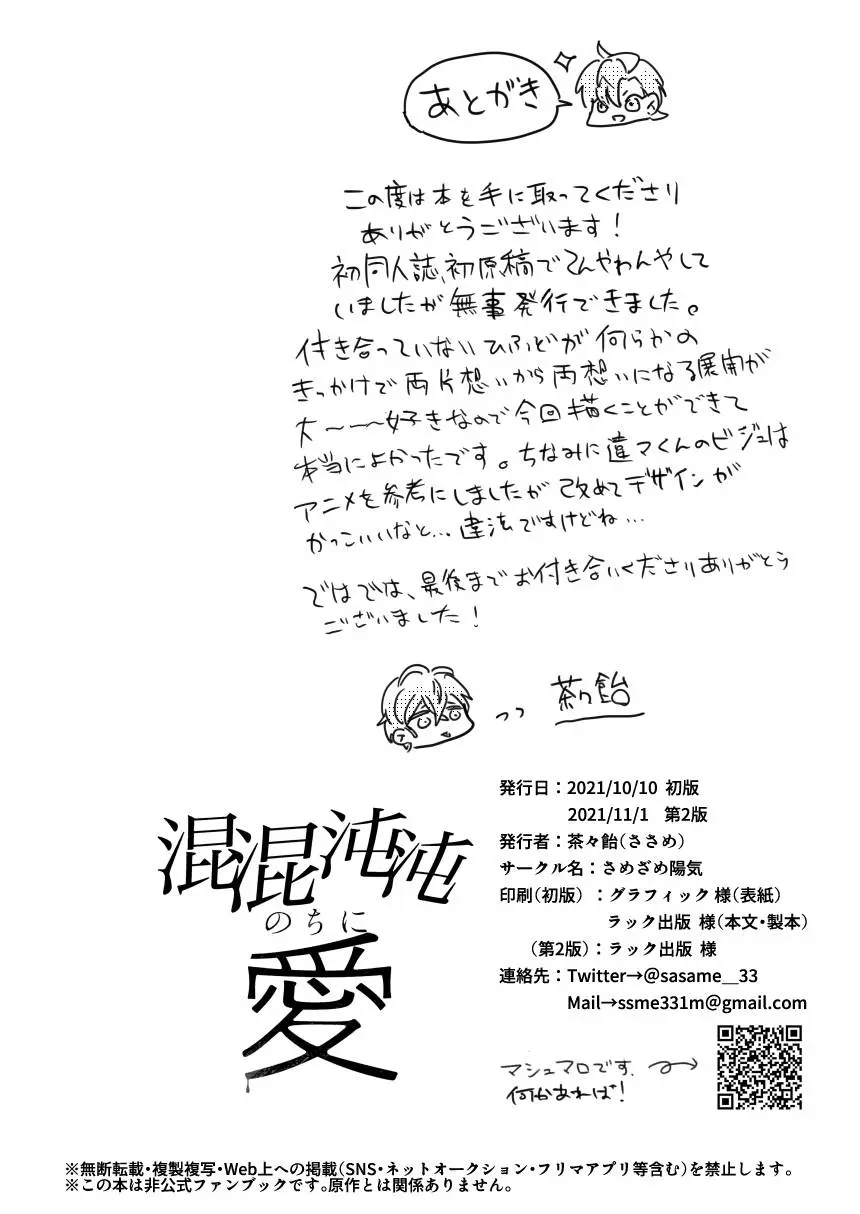 あとがき
この度は本を手に取ってくださり
ありがとうございます！
初同人誌、初原稿でてんやわんやして
いましたが無事発行できました。
付き合っていないひふどが何らかの
きっかけで両片想いから両想いになる展開が
大〜〜〜好きなので今回描くことができて
本当によかったです。ちなみに違マくんのビジュは
アニメを参考にしましたが改めてデザインが
かっこいいなと…違法ですけどね…
ではでは、最後までお付き合いくださりありがとう
ございました！
茶々飴
混混沌沌
のちに
愛
発行日：2021/10/10 初版
2021/11/1 第2版
発行者：茶々飴（ささめ）
サークル名：さめざめ陽気
印刷（初版）：グラフィック 様（表紙）
ラック出版 様（本文・製本）
（第2版）：ラック出版 様
連絡先：Twitter→@sasame__33
Mail→ssme331m@gmail.com
マシュマロです。
何かあれば！
※無断転載・複製複写・Web上への掲載（SNS・ネットオークション・フリマアプリ等含む）を禁止します。
※この本は非公式ファンブックです。原作とは関係ありません。